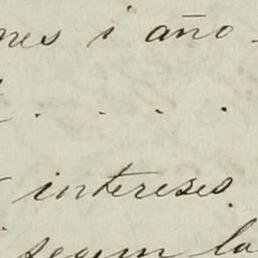 mes i año.
. . . .
intereses.
segun la